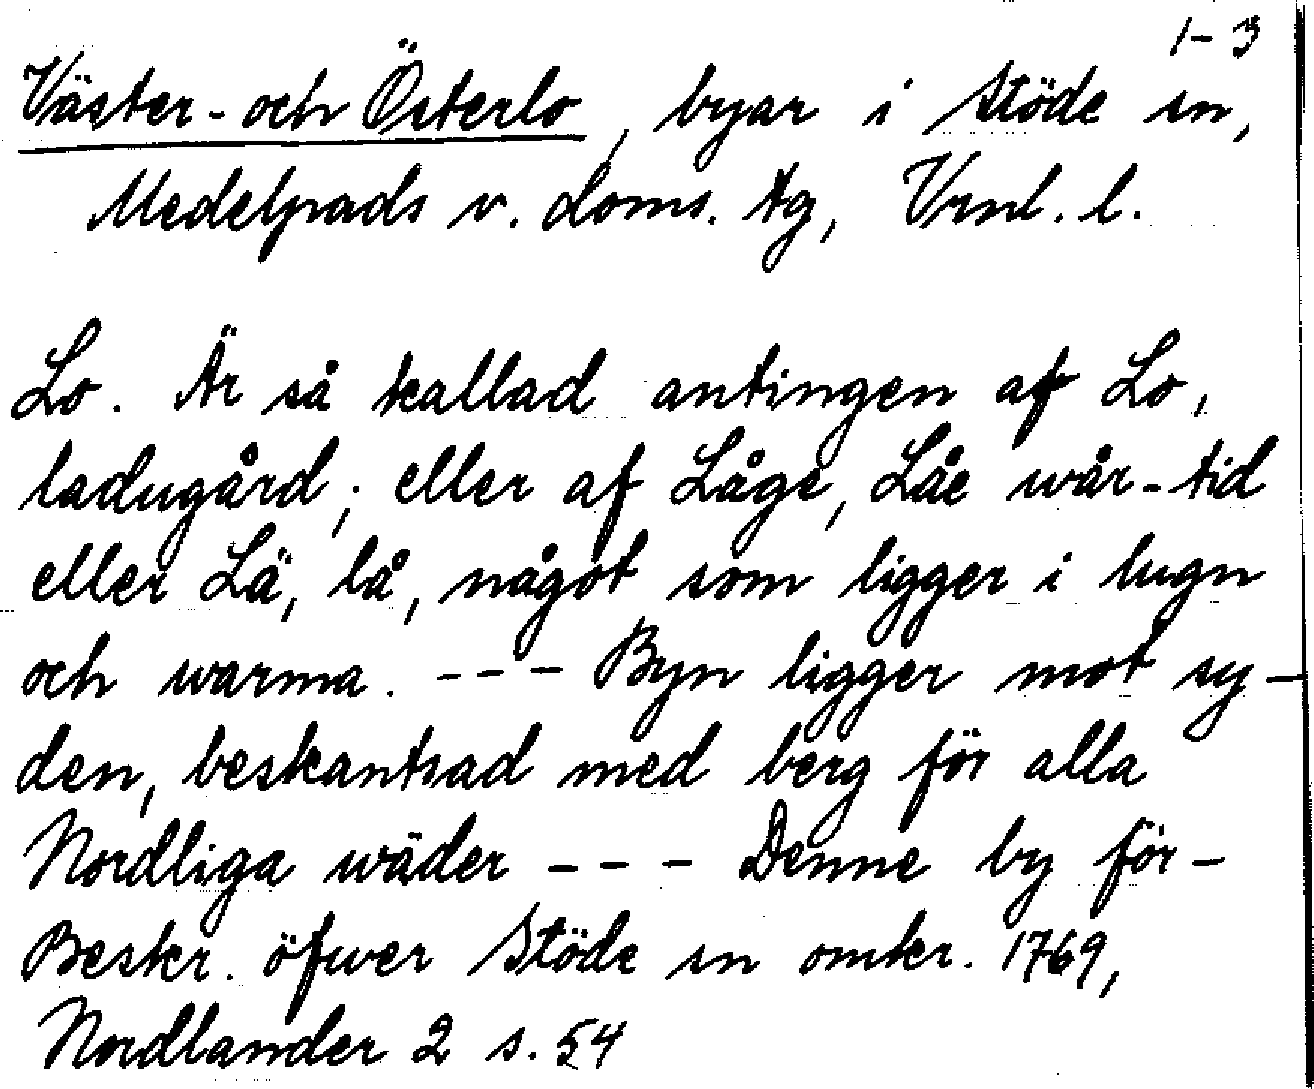 1-3
Väster- och Österlo, byar i Stöde sn,
Medelpads v. doms. tg, Vrnl. l.
Lo. Är så kallad antingen af Lo,
ladugård; eller af Låge, Låe wår-tid
eller Lä, lå, något som ligger i lugn
och warma. --- Byn ligger mot sy-
den, beskantsad med berg för alla
Nordliga wäder --- Denne by för-
Beskr. öfwer Stöde sn omkr. 1769,
Nordlander 2 s. 54